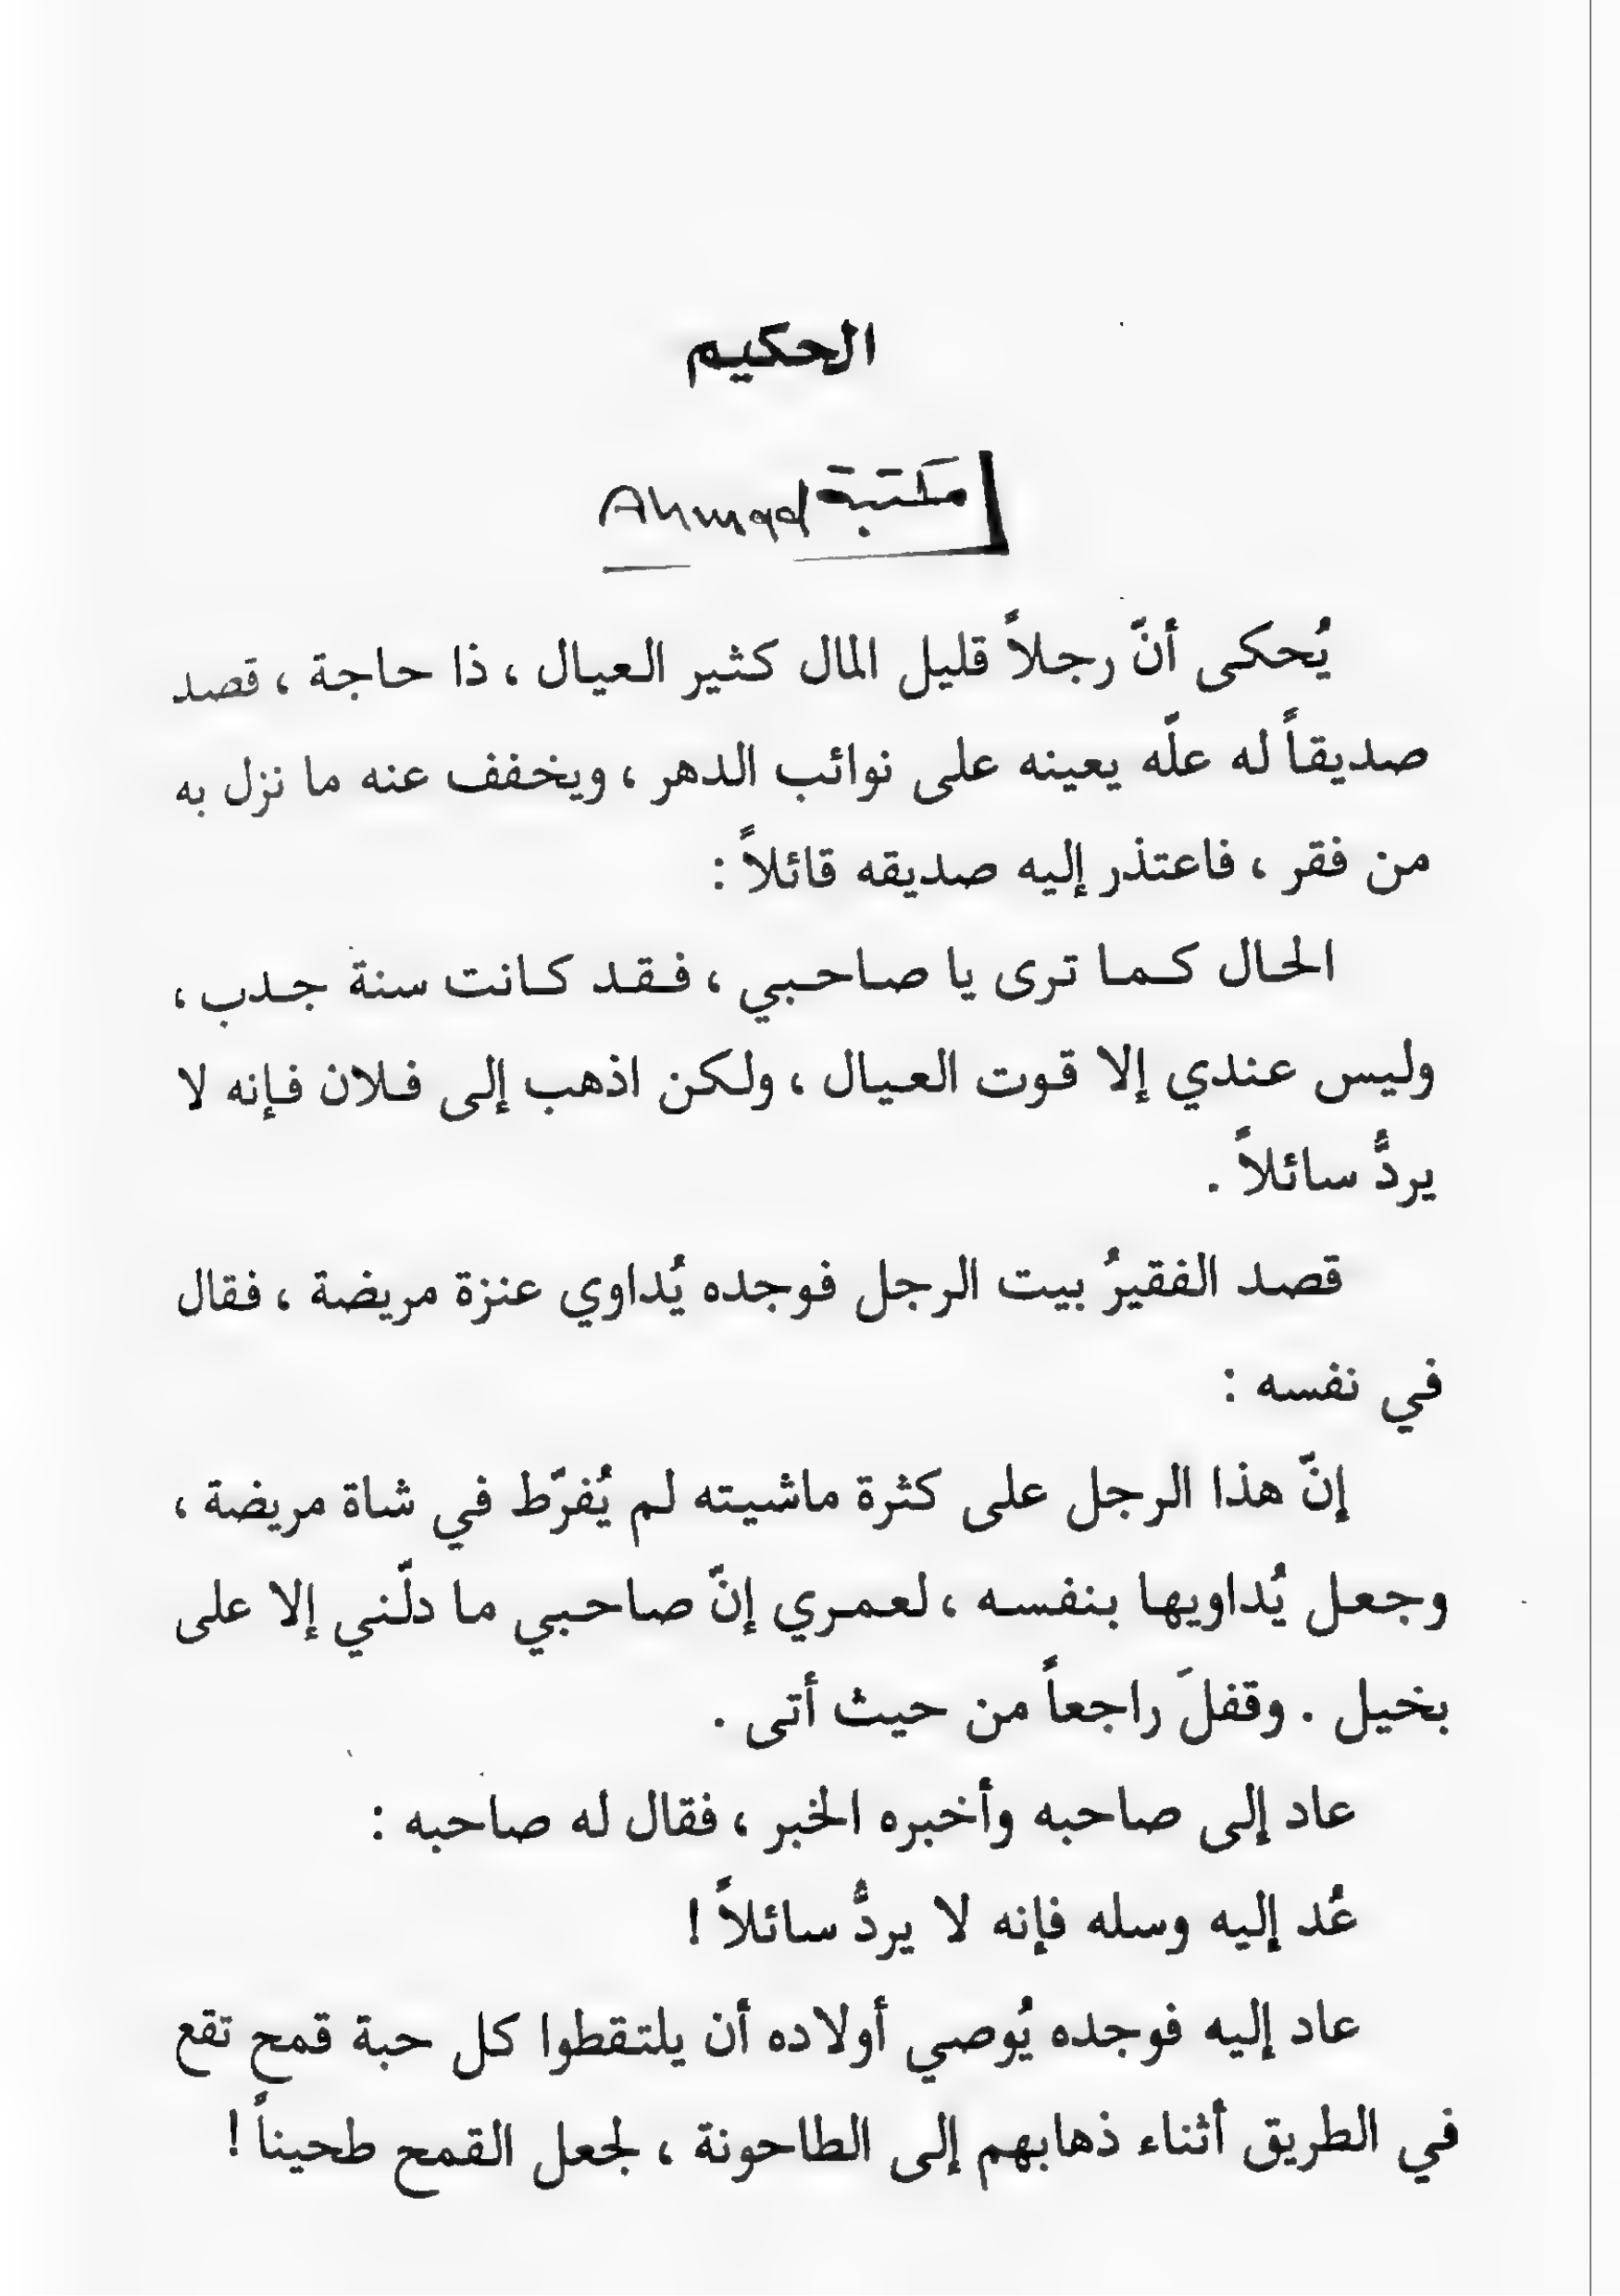 الحكيم
مكتبة Ahmad
يُحكى أنّ رجلاً قليل المال كثير العيال ، ذا حاجة ، قصد
صديقاً له علّه يعينه على نوائب الدهر ، ويخفف عنه ما نزل به
من فقر ، فاعتذر إليه صديقه قائلاً :
الحال كما ترى يا صاحبي ، فقد كانت سنة جدب ،
وليس عندي إلا قوت العيال ، ولكن اذهب إلى فلان فإنه لا
يردُّ سائلاً .
قصد الفقيرُ بيت الرجل فوجده يُداوي عنزة مريضة ، فقال
في نفسه :
إنّ هذا الرجل على كثرة ماشيته لم يُفرّط في شاة مريضة ،
وجعل يُداويها بنفسه ، لعمري إنّ صاحبي ما دلّني إلا على
بخيل . وقفلَ راجعاً من حيث أتى .
عاد إلى صاحبه وأخبره الخبر ، فقال له صاحبه :
عُد إليه وسله فإنه لا يردُّ سائلاً !
عاد إليه فوجده يُوصي أولاده أن يلتقطوا كل حبة قمح تقع
في الطريق أثناء ذهابهم إلى الطاحونة ، لجعل القمح طحيناً !